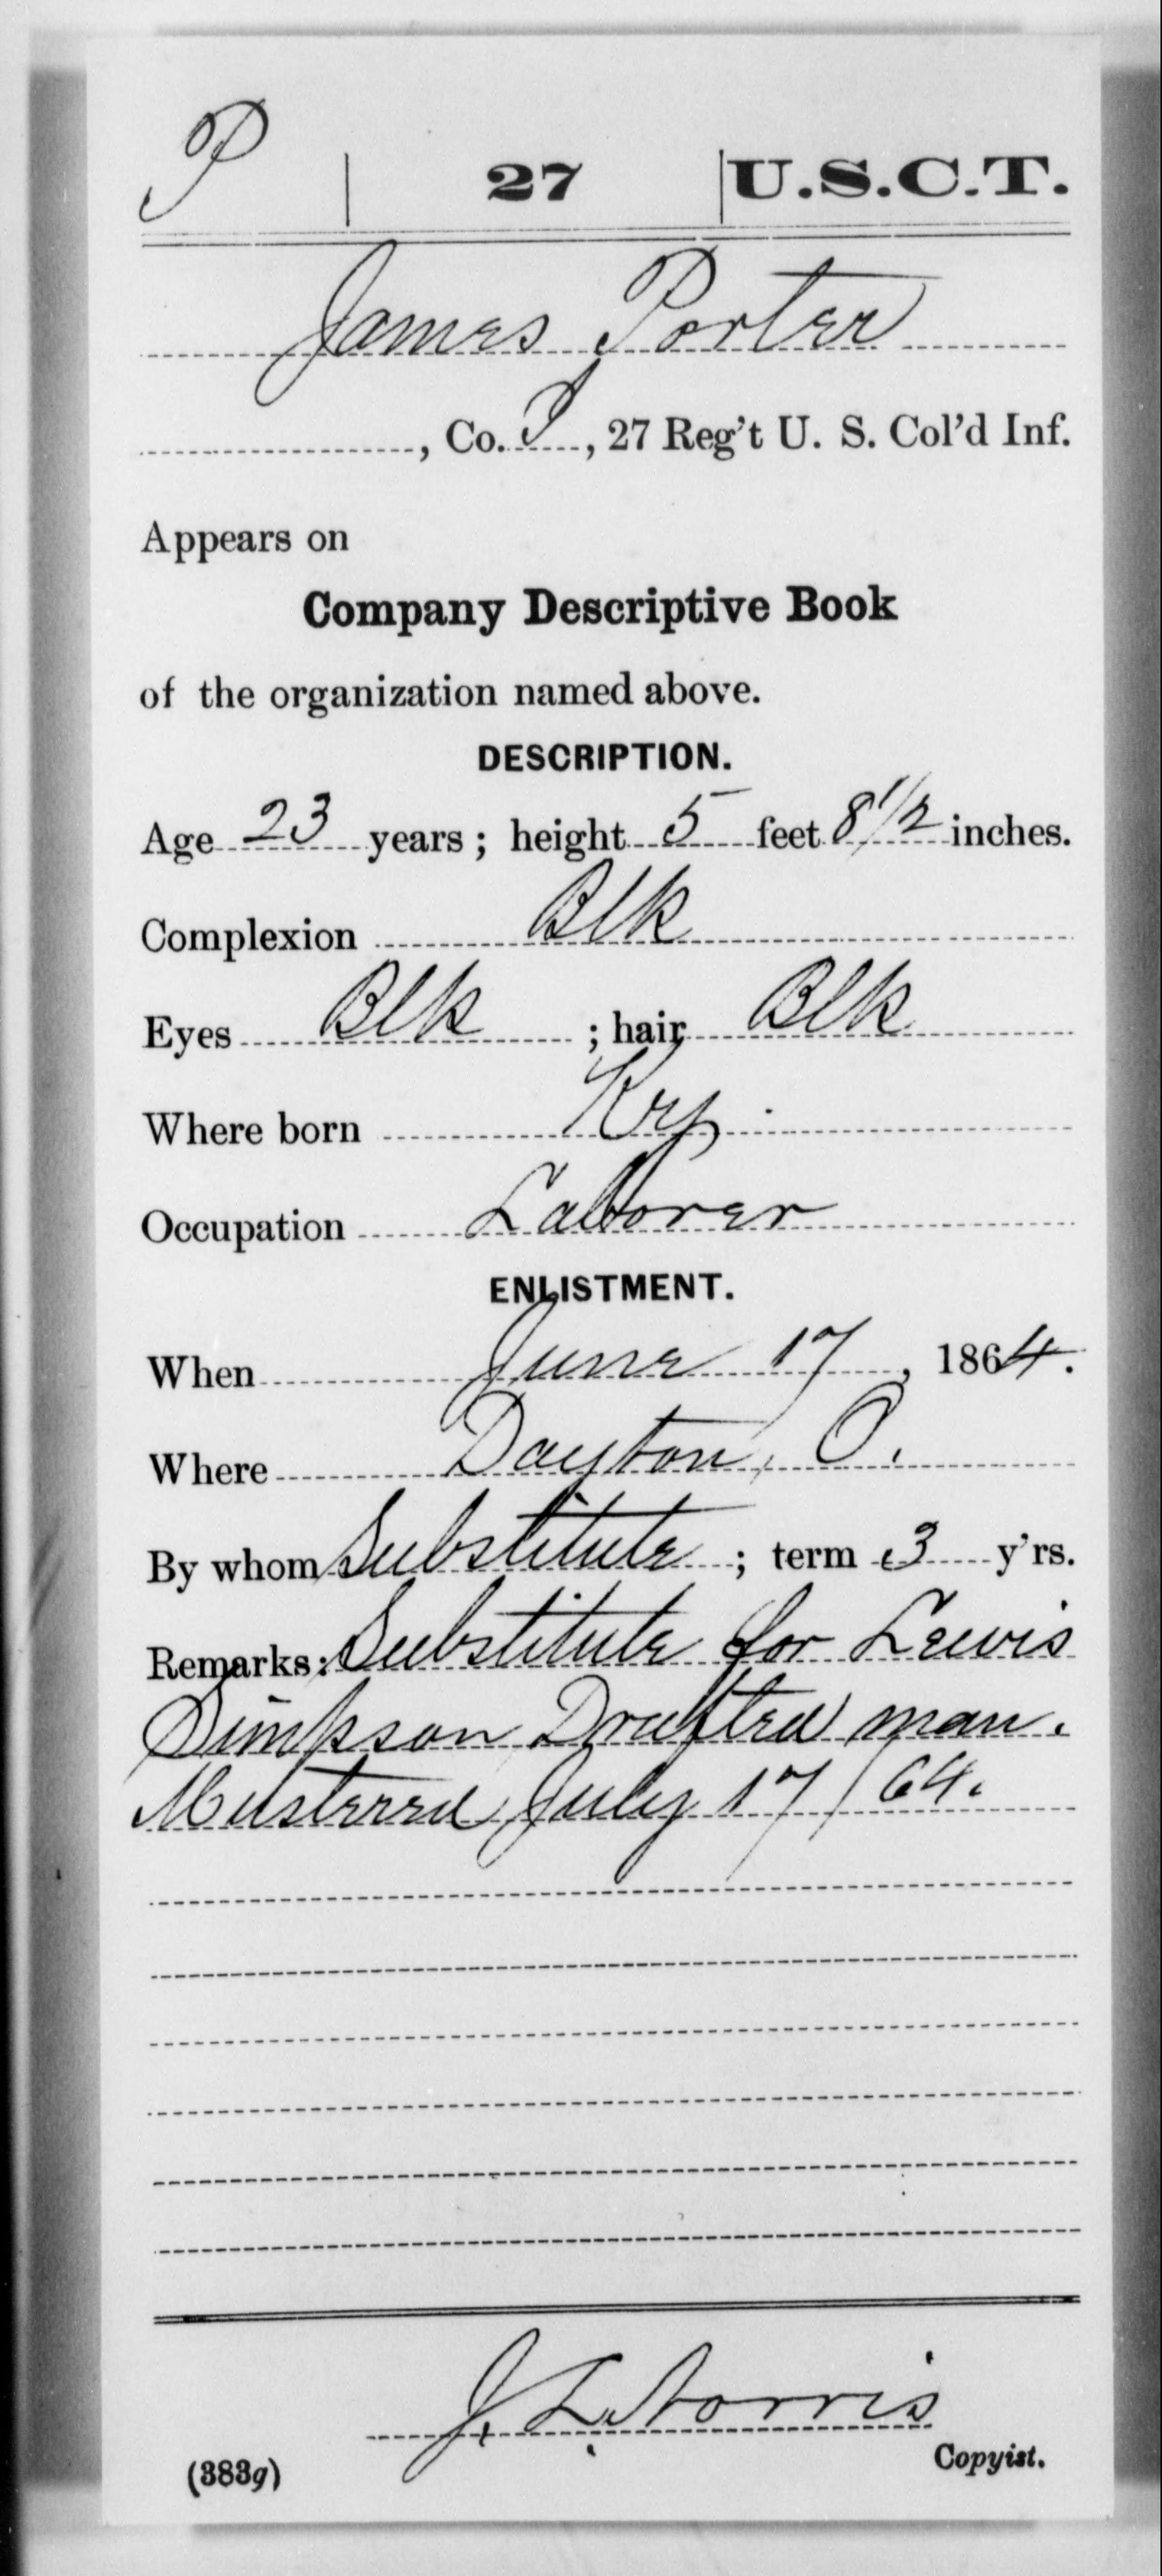 P | 27 | U.S.C.T.
James Porter
, Co. I, 27 Reg't U. S. Col'd Inf.
Appears on
Company Descriptive Book
of the organization named above.
DESCRIPTION.
Age 23 years; height 5 feet 8 1/2 inches.
Complexion Blk
Eyes Blk ; hair Blk
Where born Ky.
Occupation Laborer
ENLISTMENT.
When June 17, 1864.
Where Dayton, O.
By whom Substitute ; term 3 y'rs.
Remarks: Substitute for Lewis
Simpson Drafted man.
Mustered July 17/64.
J. L. Norris
(383g) Copyist.